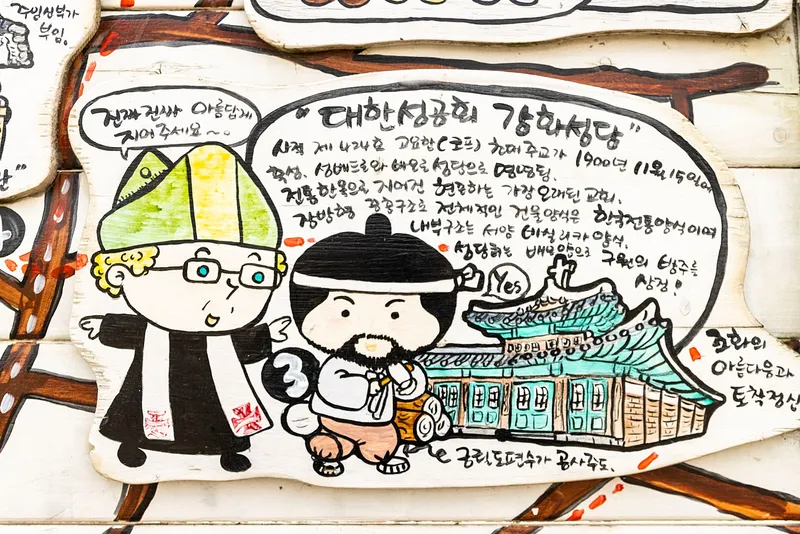 주임신부가
부임.
진짜진짜 아름답게
지어주세요~
"대한성공회 강화성당"
사적 제 424호 고요한(코프) 초대주교가 1900년 11월 15일에
축성. 성베드로와 바오로 성당으로 명명됨.
전통한옥으로 지어진 현존하는 가장 오래된 교회.
장방형 중층구조로 전체적인 건물양식은 한국전통양식이며
내부구조는 서양 바실리카 양식.
성당터는 배모양으로 구원의 방주를
상징!
Yes
3
조화의
아름다움과
토착정신
궁궐도편수가 공사주도.